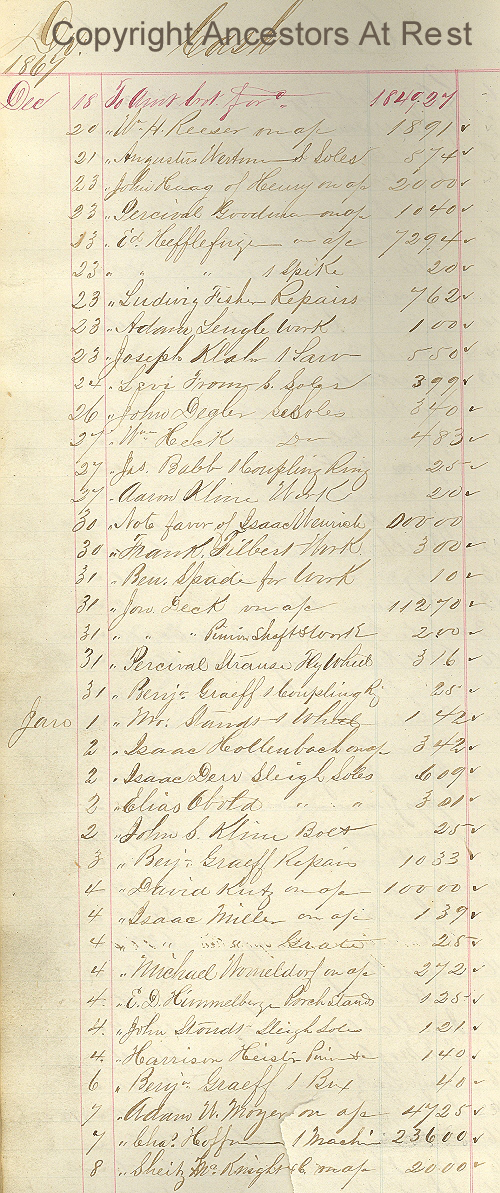 Copyright Ancestors At Rest
Dr. Cash
1867
Dec 18 To Amt brt. for'd. 1849,27
20 " Wm H. Reeser on a/c 1891
21 " Augustus S Soles 574
23 " John Haag of Henry on a/c 2000
23 " Percival Goodman on a/c 1040
23 " Ed. Hefflefinger on a/c 7294
23 " " " 1 Spike 20
23 " Ludwig Fisher Repairs 762
23 " Adam Lengle Work 100
23 " Joseph Klahr 1 Saw 550
24 " Levi From S. Soles 399
26 " John Degler Soles 340
27 " Wm Heck Do 483
27 " Jas. Babb 1 Coupling Ring 25
27 " Aaron Kline Work 20
30 " Note favor of Isaac Wenrich 0000
30 " Frank. Filbert Work 300
31 " Ben. Spade for Work 10
31 " Jon. Deck on a/c 11270
31 " " " Pinion Shaft & Work 200
31 " Percival Strause Fly Wheel 316
31 " Benjn Graeff 1 Coupling Rg 25
Jan 1 " Mo. Stands 1 Wheel 1 42
2 " Isaac Hollenbach on a/c 342
2 " Isaac Derr Sleigh Soles 609
2 " Elias Obold " " 301
2 " John S. Kline Bolt 25
3 " Benjn Graeff Repairs 1033
4 " David Kutz on a/c 10000
4 " Isaac Miller on a/c 139
4 " " " Grate 25
4 " Michael Womeldorf on a/c 272
4. " E. D. Himmelberger Porch stands 125
4. " John Stoudt Sleigh Soles 121
4. " Harrison Heister 140
6 " Benjn Graeff 1 Box 40
7 " Adam W. Moyer on a/c 4725
7 " Chas. Hoffman 1 Machin 23600
8 " Sheitz McKnight & C. on a/c 2000